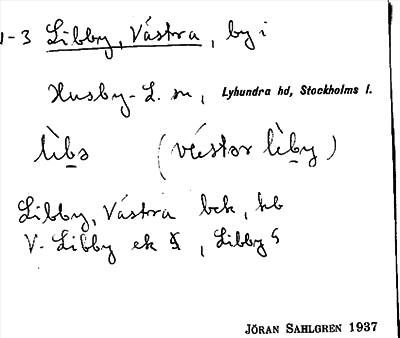 1-3 Libby, Västra, by i
Husby-L. sn, Lyhundra hd, Stockholms l.
lìbə (vèstər lèby)
Libby, Västra bek, kb
V. Libby ek §, Libby §
JÖRAN SAHLGREN 1937